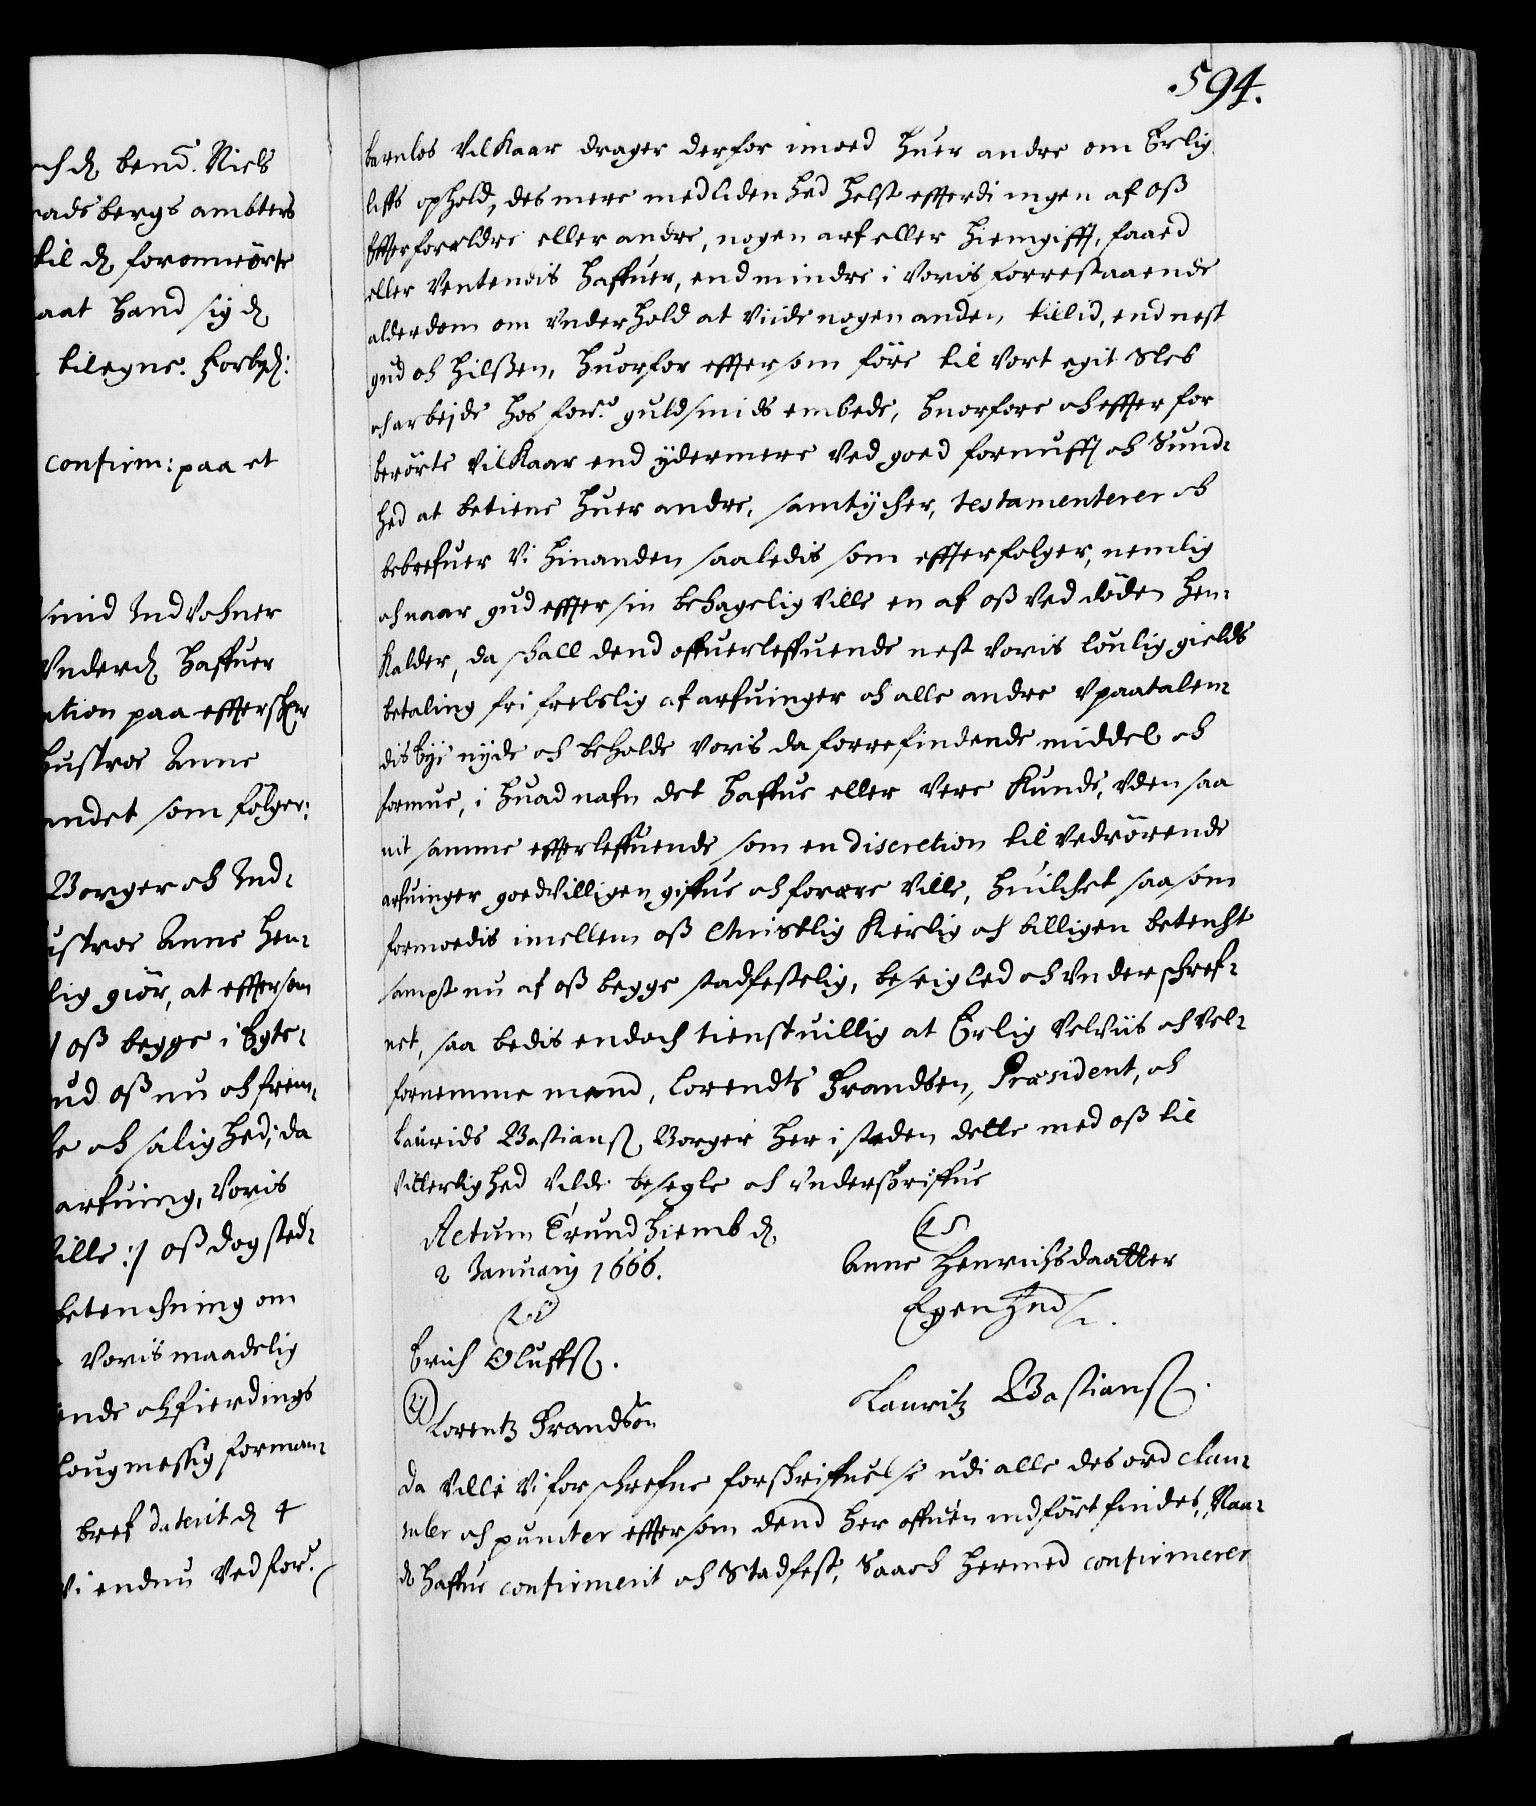 och d. bend. Niels
radsbergs ambters
til d. foromrörte
aat hand sig d.
tilegne. Forbyd:
confirm: paa et
smid Indvohner
Vnderd. haffuer
ation paa effterschr
hustroe Anne
indet som følger:
Borger och Ind-
ustroe Anne Hen-
lig giör, at effersom
oss begge i Egte-
ud oss nu och frem-
e och salighed; da
arfuing, voris
ville :/ oss dog sted-
betenchning om
voris maadelig
ende och fierdings
lougmessig forman-
bref daterit d. 4
Vi endnu ved for.
594.
barnløs vilkaar drager derfor imoed huer andre om Erlig
liffs ophold, des mere medlidenhed helst effterdi ingen af oss
effter forældre eller andre, nogen arf eller hiemgifft, faaed
eller Ventendis haffuer, end mindre i voris forrestaaende
alderdom om vnderhold at viide nogen anden tillid, end nest
gud och hilssen, huorfor efftersom före til vort egit Sleb
och arbejde hos for: guldsmids embede, huorfore och effter for
berörte vilkaar end ÿdermere ved goed fornufft och Sund-
hed at betiene huer andre, samtÿcher, testamenterer oc
bebrefuer Vi hinanden saaledis som effterfolger, nemlig
och naar gud effter sin behagelig ville en af oss ved döden hen-
kalder, da schall dend offuerleffuende nest voris loulig gields
betaling fri frelslig af arfuinger och alle andre vpaatalen-
dis bÿe nÿde och beholde voris da forrefindende middel och
formue, i huad nafn det haffue eller vere kunde, vden saa
vit samme effterleffuende som en discretion til vedrörende
arfuinger goedvilligen giffue och forære ville, huilchet saasom
formoedis imellem oss Christlig kierlig och billigen betencht
sampt nu af oss begge stadfestelig, beseigled och vnderschref-
net, saa bedis endoch tienstuillig at Erlig Velviis och vel-
fornemme mand, Lorendts Frandsen, Præsident, och
Laurids Bastianss. Borger her i staden dette med oss til
vitterlighed vilde besegle och vnderschriffue
Actum Trundhiemb d.
2 Januarij 1666.
LS
Anne Henrichsdaatter
Egenhnd
Erich Oluffss.
Lauritz Bastianss.
Lorentz Frandsön
Da ville vi forschrefne forschriffuelse udi alle des ord clau-
suler och puncter effter som dend her offuen indfört findes, Naa-
d. haffue confirmerit och Stadfest, Saa och hermed confirmerer